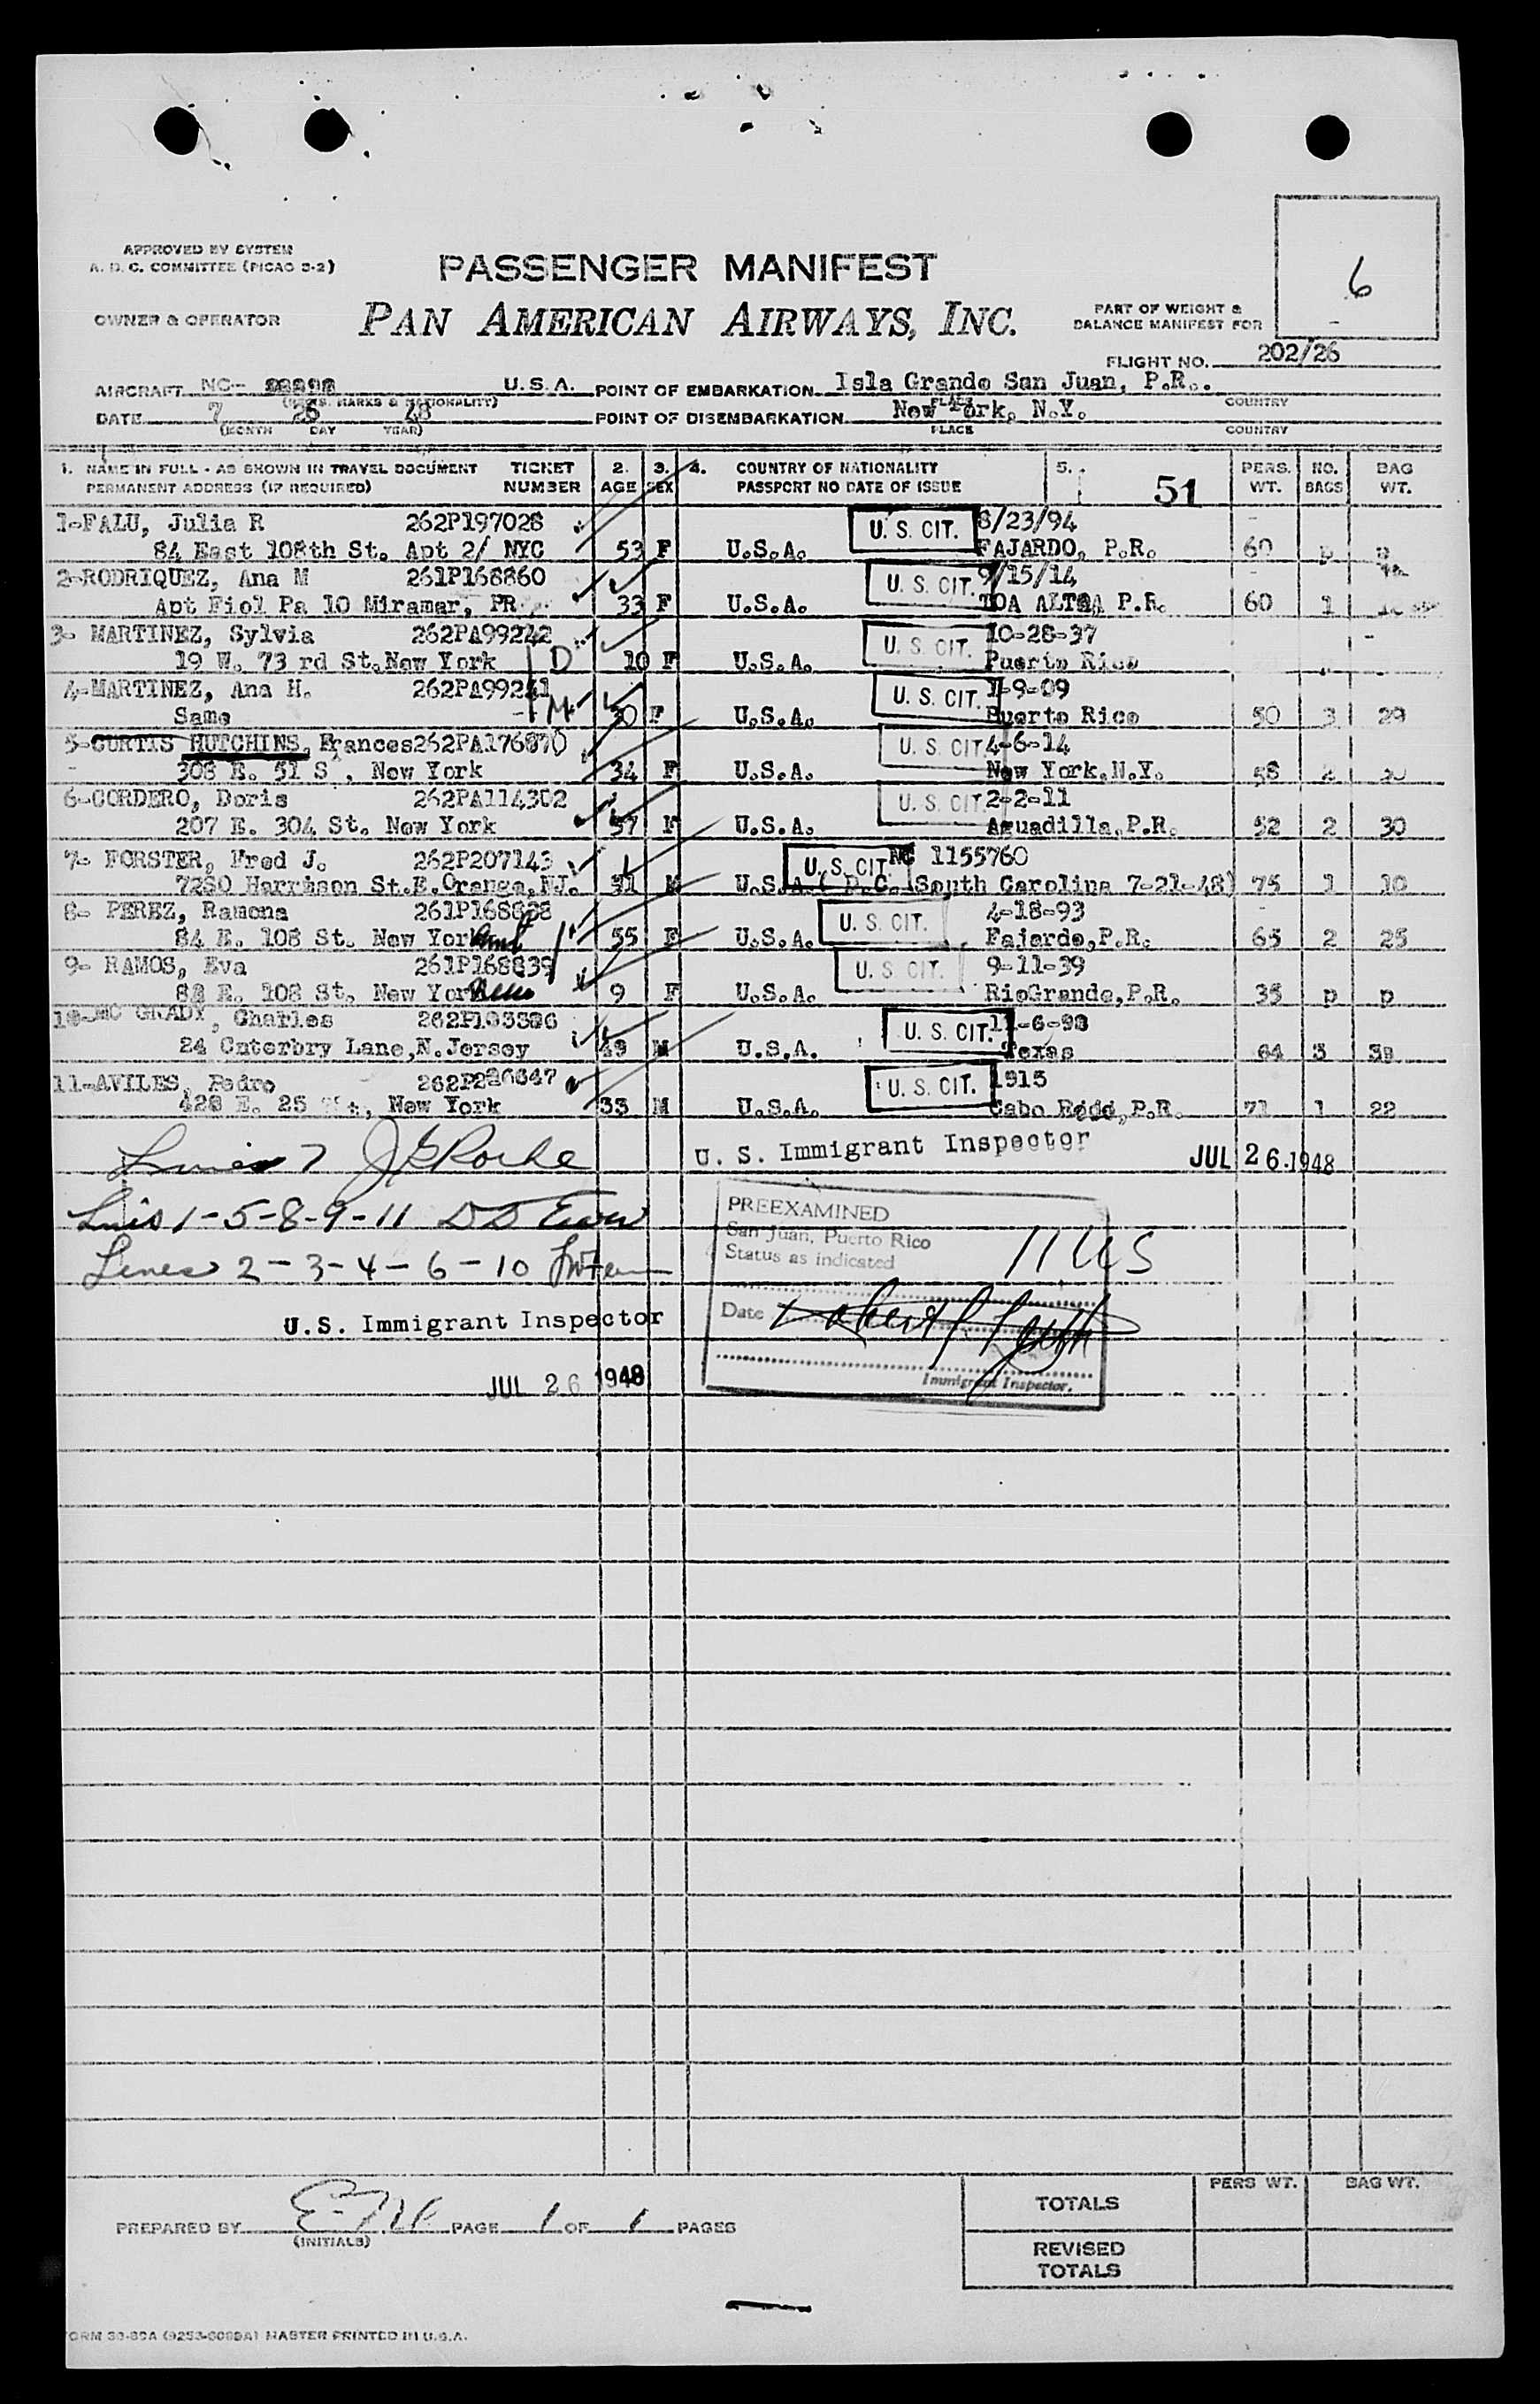 APPROVED BY SYSTEM
A. D. C. COMMITTEE (PICAO S-2)
PASSENGER MANIFEST
6
OWNER & OPERATOR
PAN AMERICAN AIRWAYS, INC.
PART OF WEIGHT &
BALANCE MANIFEST FOR
FLIGHT NO. 202/26
AIRCRAFT NC- U.S.A. POINT OF EMBARKATION Isla Grande San Juan, P.R..
(REGIS. MARKS & NATIONALITY) PLACE COUNTRY
DATE 7 26 48 POINT OF DISEMBARKATION New York, N.Y.
(MONTH DAY YEAR) PLACE COUNTRY
1. NAME IN FULL - AS SHOWN IN TRAVEL DOCUMENT TICKET 2. 3. 4. COUNTRY OF NATIONALITY 5. PERS. NO. BAG
PERMANENT ADDRESS (IF REQUIRED) NUMBER AGE SEX PASSPORT NO DATE OF ISSUE 51 WT. BAGS WT.
1-FALU, Julia R 262P197028 U. S. CIT. 8/23/94
84 East 108th St. Apt 2/ NYC 53 F U.S.A. FAJARDO, P.R. 60 p p
2-RODRIQUEZ, Ana M 261P168860 U. S. CIT. 9/15/14
Apt Fiol Pa 10 Miramar, PR 33 F U.S.A. TOA ALTA P.R. 60 1
3- MARTINEZ, Sylvia 262PA99242 U. S. CIT. 10-28-37
19 W. 73 rd St.New York D 10 F U.S.A. Puerto Rico
4-MARTINEZ, Ana H. 262PA99241 U. S. CIT. 1-9-09
Same M 30 F U.S.A. Puerto Rico 50 3 29
5-CURTIS HUTCHINS, Frances 262PA176870 U. S. CIT. 4-6-14
308 E. 51 S , New York 34 F U.S.A. New York,N.Y. 58 2
6-CORDERO, Doris 262PA114302 U. S. CIT. 2-2-11
207 E. 304 St. New York 37 F U.S.A. Aguadilla,P.R. 52 2 30
7- FORSTER, Fred J. 262P207143 U. S. CIT. NC 1155760
7280 Harrison St.E.Orange,NJ. 31 M U.S.A.( D.C. South Carolina 7-21-48) 75 1 10
8- PEREZ, Ramona 261P168838 U. S. CIT. 4-18-93
84 E. 108 St. New York Aunt 55 F U.S.A. Fajardo,P.R. 65 2 25
9- RAMOS, Eva 261P168839 U. S. CIT. 9-11-39
88 E. 108 St. New York Niece 9 F U.S.A. RioGrande,P.R. 35 p p
10-MC GRADY, Charles 262P103386 U. S. CIT. 11-6-98
24 Cnterbry Lane,N.Jersey 49 M U.S.A. Texas 64 3 39
11-AVILES, Pedro 262P226647 U. S. CIT. 1915
428 E. 25 St., New York 33 M U.S.A. Cabo Rojo,P.R. 71 1 22
Lines 7 J E Roche U. S. Immigrant Inspector JUL 26 1948
Lines 1-5-8-9-11
Lines 2-3-4-6-10
U.S. Immigrant Inspector
JUL 26 1948
PREEXAMINED
San Juan, Puerto Rico
Status as indicated
11 US
Date
Immigrant Inspector.
PREPARED BY PAGE 1 OF 1 PAGES
(INITIALS)
PERS WT. BAG WT.
TOTALS
REVISED
TOTALS
MASTER PRINTED IN U.S.A.